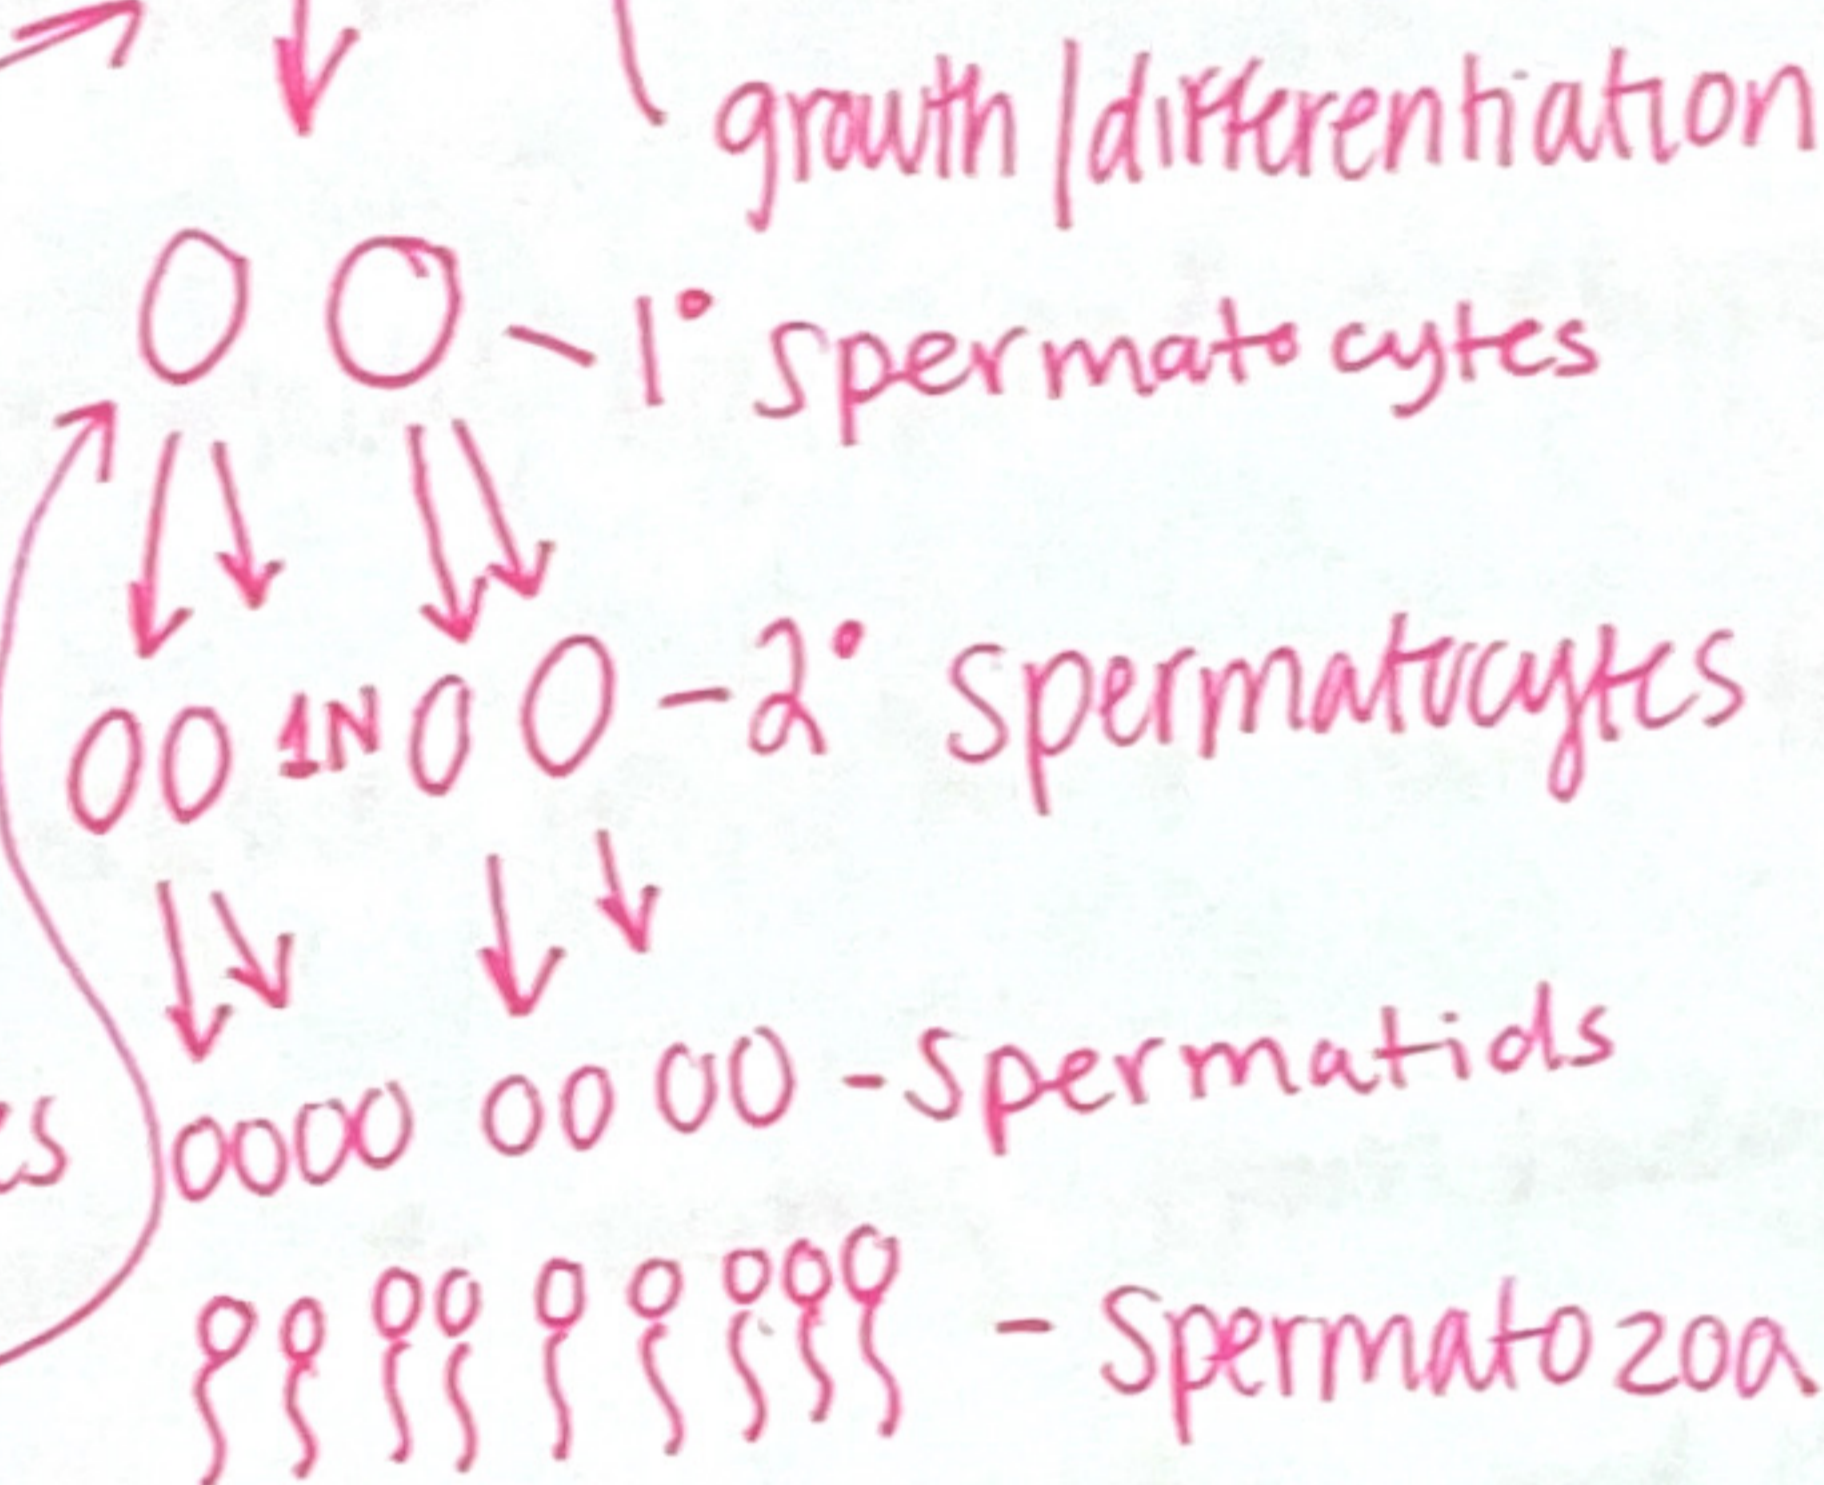 growth/differentiation
1° spermatocytes
1N
2° spermatocytes
-spermatids
es
- spermatozoa